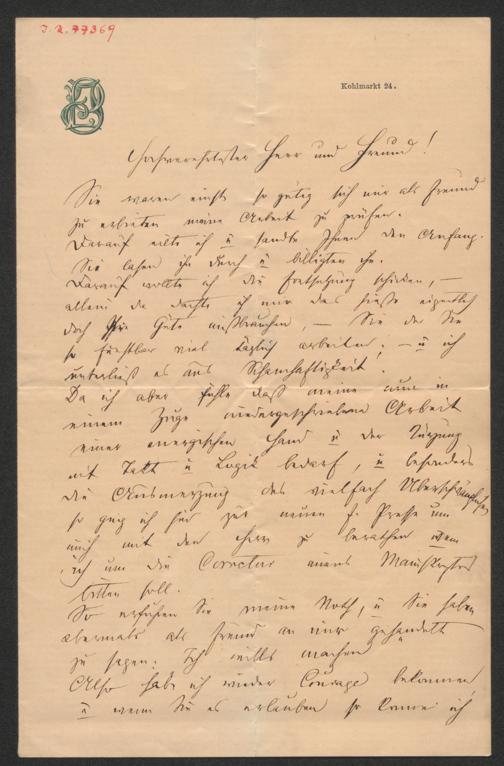 I.N. 77369
Kohlmarkt 24.
Hochverehrtester Herr und Freund!
Sie waren einst so gütig sich mir als Freund
zu erbieten meine Arbeit zu prüfen.
Darauf eilte ich u sandte Ihnen den Anfang.
Sie lasen ihn durch u billigten ihn.
Darauf wollte ich die Fortsetzung schicken, –
allein da dachte ich mir das hieße eigentlich
doch Ihre Güte mißbrauchen, – Sie der Sie
so furchtbar viel täglich arbeiten; – u ich
unterließ es aus Schamhaftigkeit.
Da ich aber fühle daß meine nun in
einem Zuge niedergeschriebene Arbeit
einer energischen Hand u der Kürzung
mit Takt u Logik bedarf, u besonders
die Ausmerzung des vielfach Überschwänglichen
so ging ich hin zur neuen fr. Presse um
mich mit den Herrn zu berathen wem
ich um die Correctur meines Manuskriptes
bitten soll.
So erfuhren Sie meine Noth, u Sie haben
abermals als Freund an mir gehandelt
zu sagen: Ich will's machen
Also habe ich wieder Courage bekommen
u wenn Sie es erlauben so komme ich